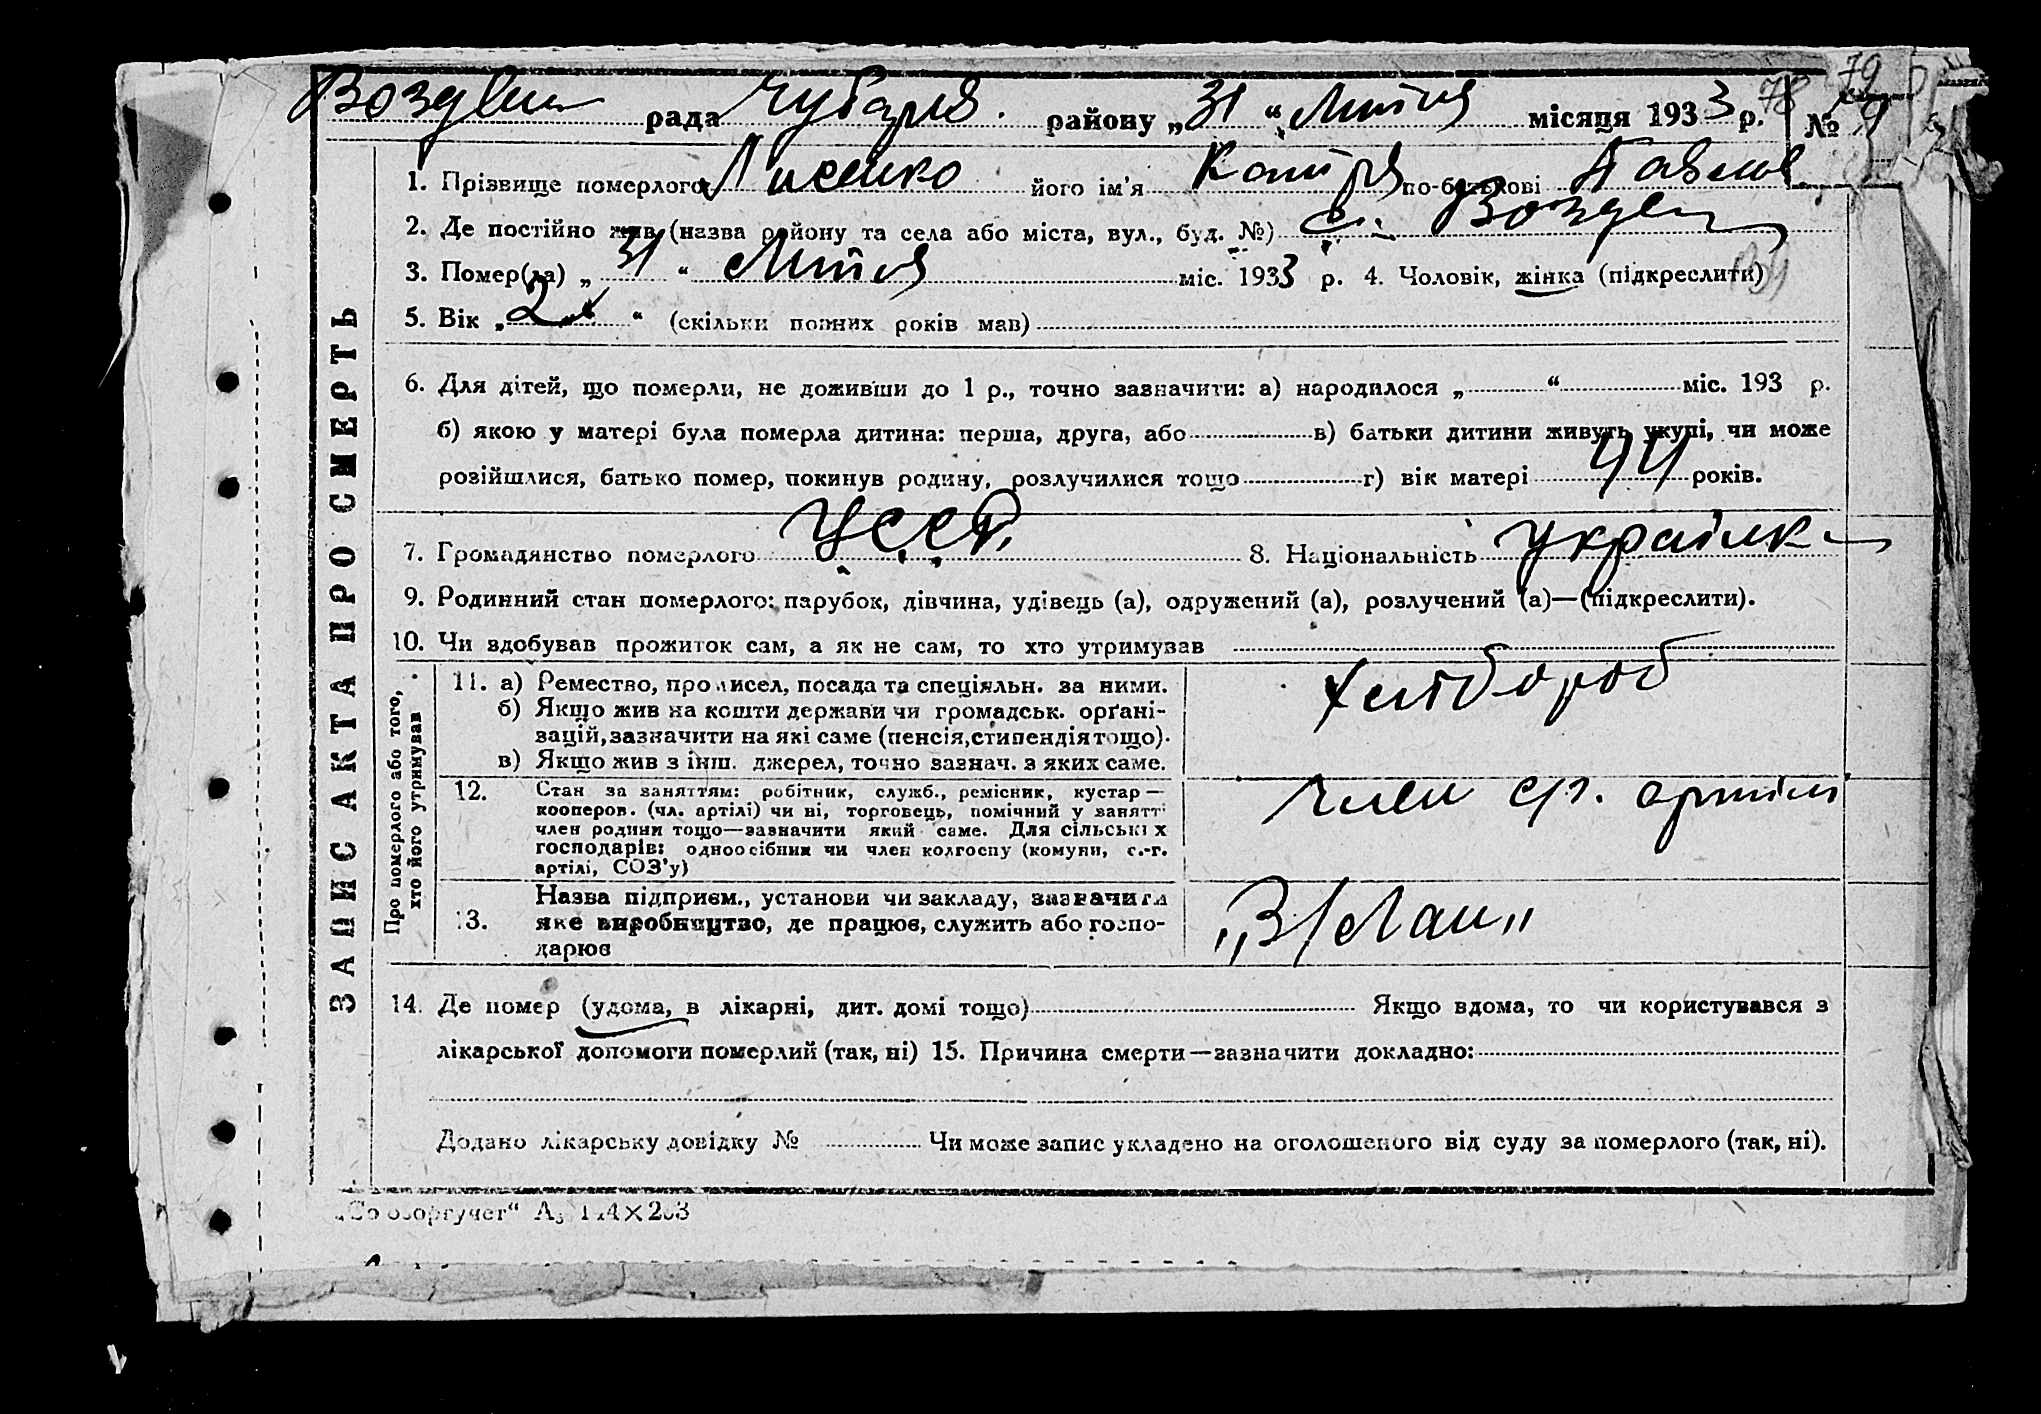 Воздвиж рада Чубарів. району „31“ Липня місяця 1933 р. № 9
78 79
ЗАПИС АКТА ПРО СМЕРТЬ
1. Прізвище померлого Лисенко його ім'я Катря по-батькові Павлов
2. Де постійно жив (назва району та села або міста, вул., буд. №) с. Воздв
3. Помер(ла) „31“ Липня міс. 1933 р. 4. Чоловік, жінка (підкреслити)
5. Вік „2“ (скільки повних років мав)
6. Для дітей, що померли, не доживши до 1 р., точно зазначити: а) народилося „ “ міс. 193 р.
б) якою у матері була померла дитина: перша, друга, або в) батьки дитини живуть укупі, чи може
розійшлися, батько помер, покинув родину, розлучилися тощо г) вік матері 44 років.
7. Громадянство померлого УССР. 8. Національність українк
9. Родинний стан померлого: парубок, дівчина, удівець (а), одружений (а), розлучений (а)—(підкреслити).
10. Чи здобував прожиток сам, а як не сам, то хто утримував
Про померлого або того,
хто його утримував
11. а) Ремество, промисел, посада та спеціяльн. за ними. хлібороб
б) Якщо жив на кошти держави чи громадськ. орґані-
зацій, зазначити на які саме (пенсія, стипендія тощо).
в) Якщо жив з інш. джерел, точно зазнач. з яких саме.
12. Стан за заняттям: робітник, служб., ремісник, кустар— член с/г. артіли
кооперов. (чл. артілі) чи ні, торговець, помічний у занятт
член родини тощо—зазначити який саме. Для сільських
господарів: одноосібник чи член колгоспу (комуни, с.-г.
артілі, СОЗ'у)
13. Назва підприєм., установи чи закладу, зазначити
яке виробництво, де працює, служить або госпо-
дарює
14. Де помер (удома, в лікарні, дит. домі тощо) Якщо вдома, то чи користувався з
лікарської допомоги померлий (так, ні) 15. Причина смерти—зазначити докладно:
Додано лікарську довідку № Чи може запис укладено на оголошеного від суду за померлого (так, ні).